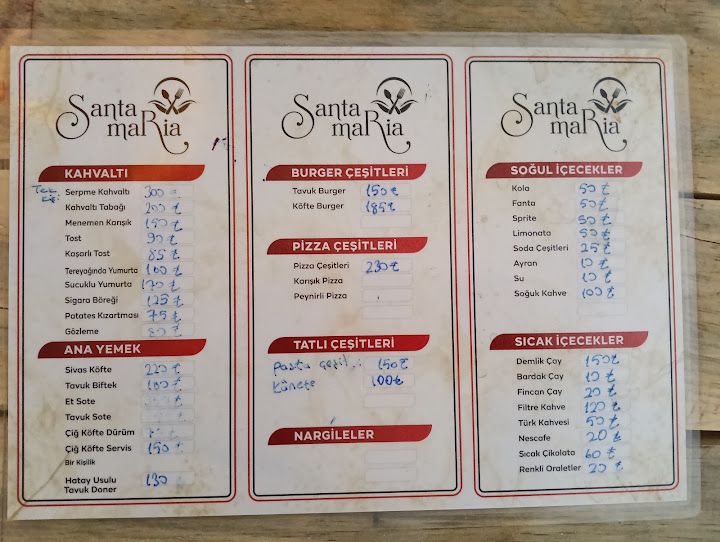 Santa
maRia
KAHVALTI
Tek
Serpme Kahvaltı 300 ₺
Kahvaltı Tabağı 200 ₺
Menemen Karışık 150 ₺
Tost 90 ₺
Kaşarlı Tost 85 ₺
Tereyağında Yumurta 100 ₺
Sucuklu Yumurta 170 ₺
Sigara Böreği 125 ₺
Patates Kızartması 75 ₺
Gözleme 80 ₺
ANA YEMEK
Sivas Köfte 220 ₺
Tavuk Biftek 180 ₺
Et Sote
Tavuk Sote
Çiğ Köfte Dürüm
Çiğ Köfte Servis 150 ₺
Bir Kişilik
Hatay Usulu
Tavuk Doner 130 ₺
Santa
maRia
BURGER ÇEŞİTLERİ
Tavuk Burger 150 ₺
Köfte Burger 185 ₺
PİZZA ÇEŞİTLERİ
Pizza Çeşitleri 230 ₺
Karışık Pizza
Peynirli Pizza
TATLI ÇEŞİTLERİ
Pasta çeşit 150 ₺
Künefe 100 ₺
NARGİLELER
Santa
maRia
SOĞUL İÇECEKLER
Kola 50 ₺
Fanta 50 ₺
Sprite 50 ₺
Limonata 50 ₺
Soda Çeşitleri 25 ₺
Ayran 10 ₺
Su 10 ₺
Soğuk Kahve 100 ₺
SICAK İÇECEKLER
Demlik Çay 150 ₺
Bardak Çay 10 ₺
Fincan Çay 20 ₺
Filtre Kahve 120 ₺
Türk Kahvesi 50 ₺
Nescafe 20 ₺
Sıcak Çikolata 60 ₺
Renkli Oraletler 20 ₺